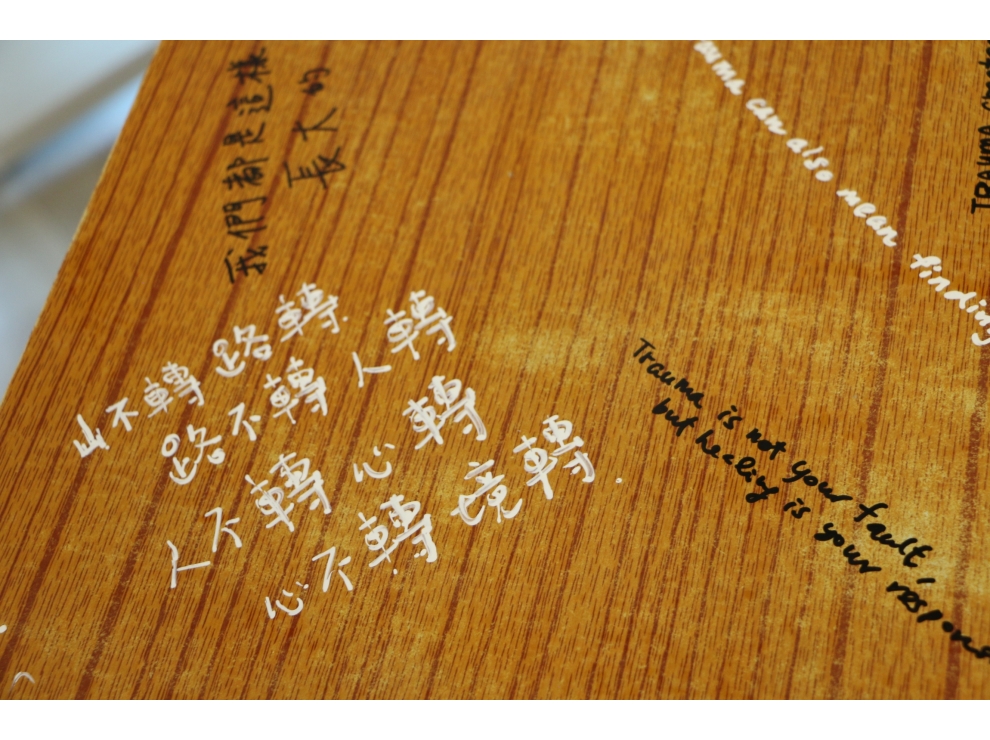 我們都是這樣
長大的
山不轉路轉.
路不轉人轉
人不轉心轉
心不轉境轉.
can also mean finding
TRAUMA
Trauma is not your fault,
but healing is your